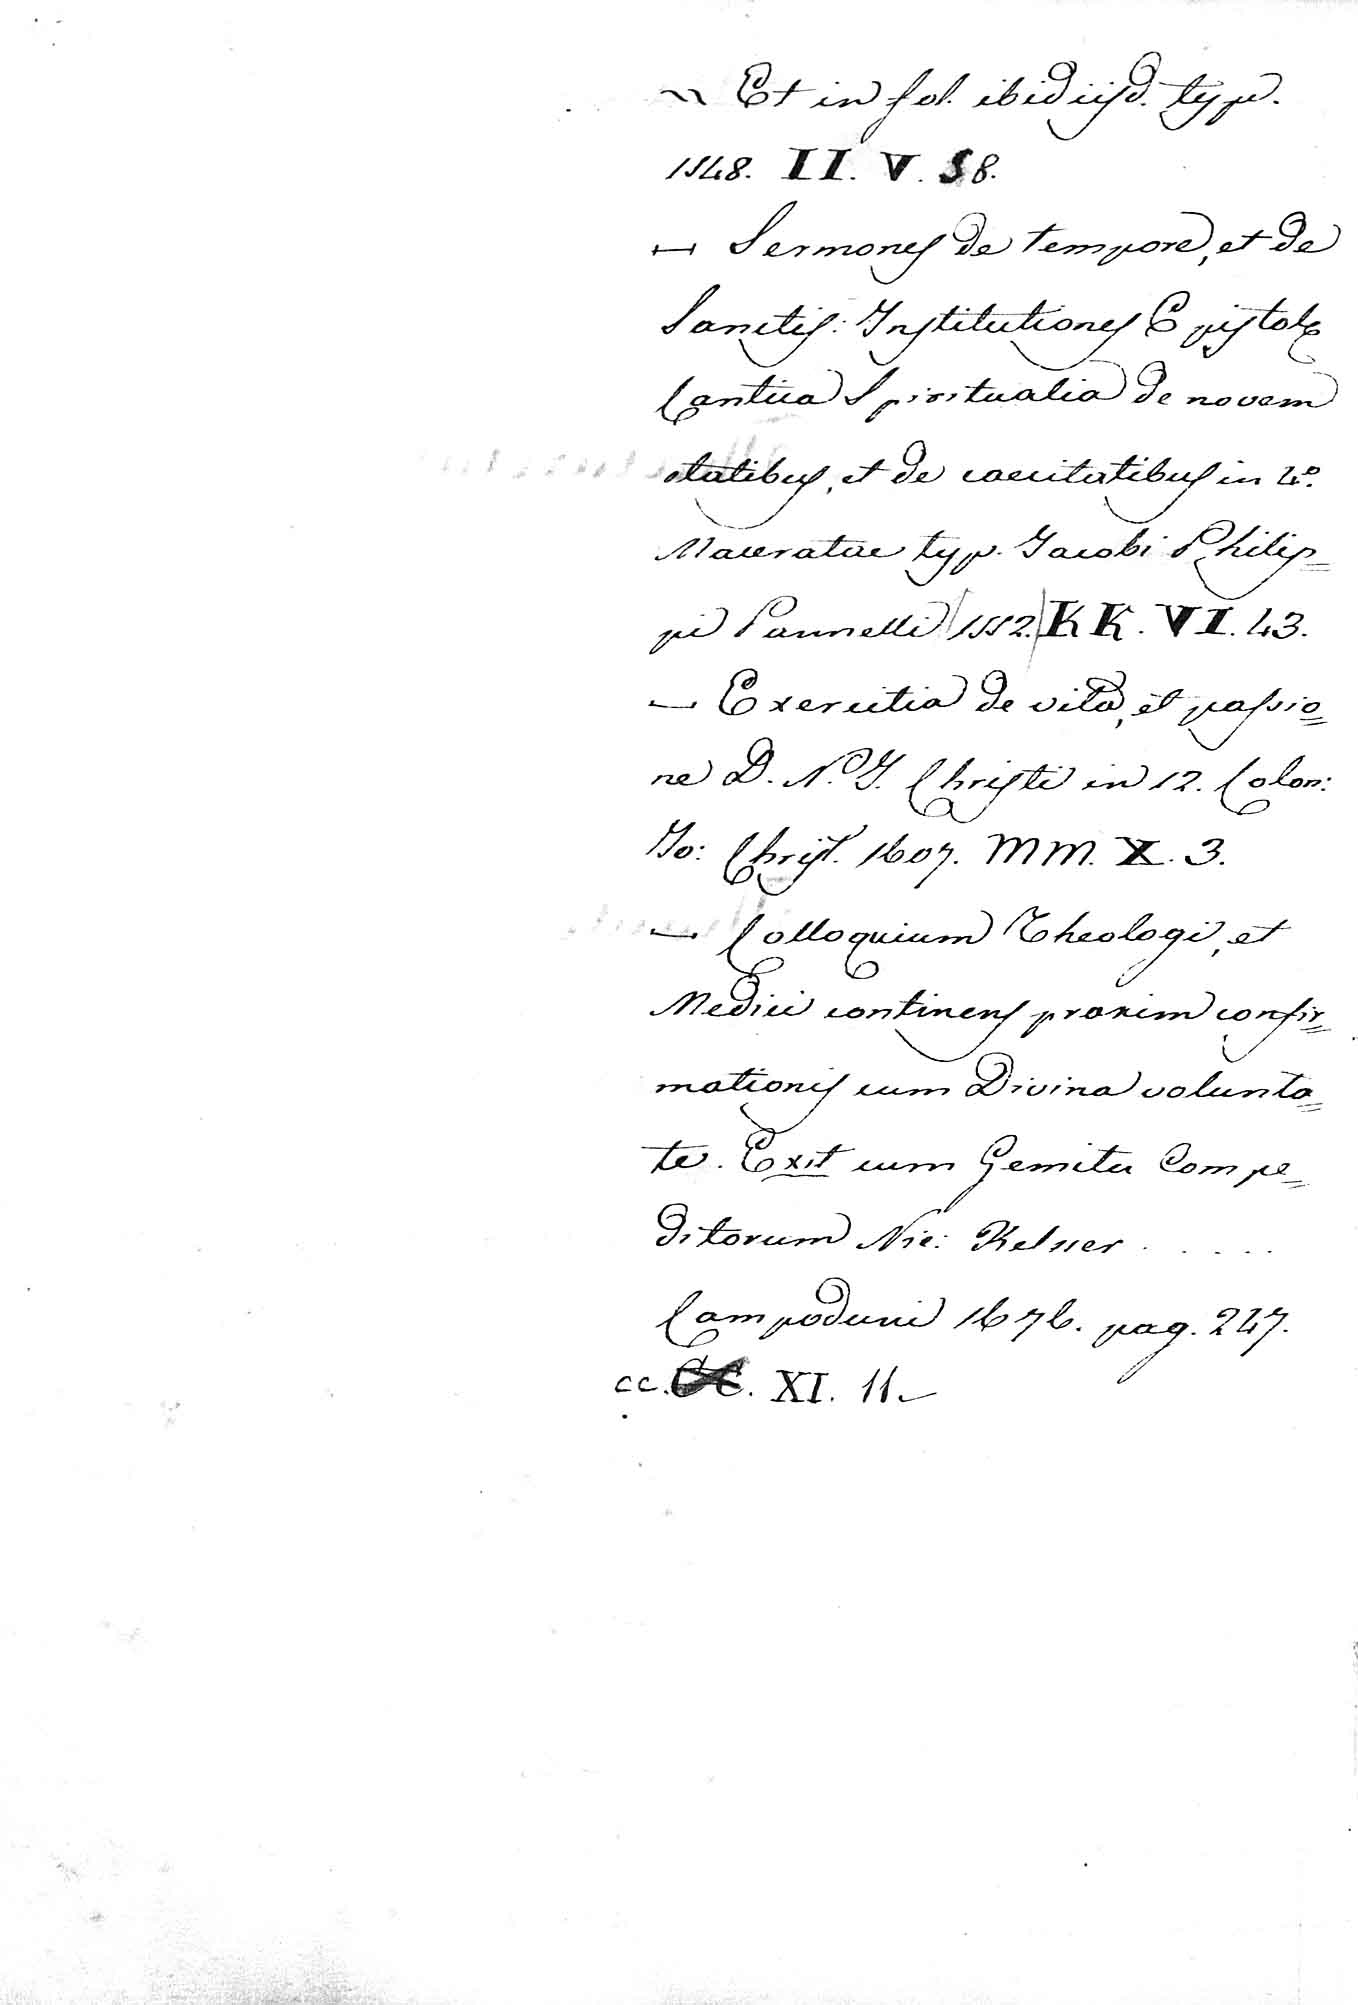 ~ Et in fol. ibid iisd. typ.
1548. II. V. 58.
— Sermones de tempore, et de
Sanctis: Institutiones Epistolæ
Cantica Spiritualia de novem
statibus, et de caecitatibus in 4.º
Maceratae typ. Jacobi Philip=
pi Pannelli 1552. KK. VI. 43.
— Exercitia de vita, et passio=
ne D. N. J. Christi in 12. Colon:
Jo: Christ. 1607. MM. X. 3.
— Colloquium Theologi, et
Medici continens praxim confir=
mationis cum Divina volunta=
te. Exit cum Gemitu Compe=
ditorum Nic: Kelsser . . . . .
Campoduni 1676. pag. 247.
cc. CC. XI. 11.